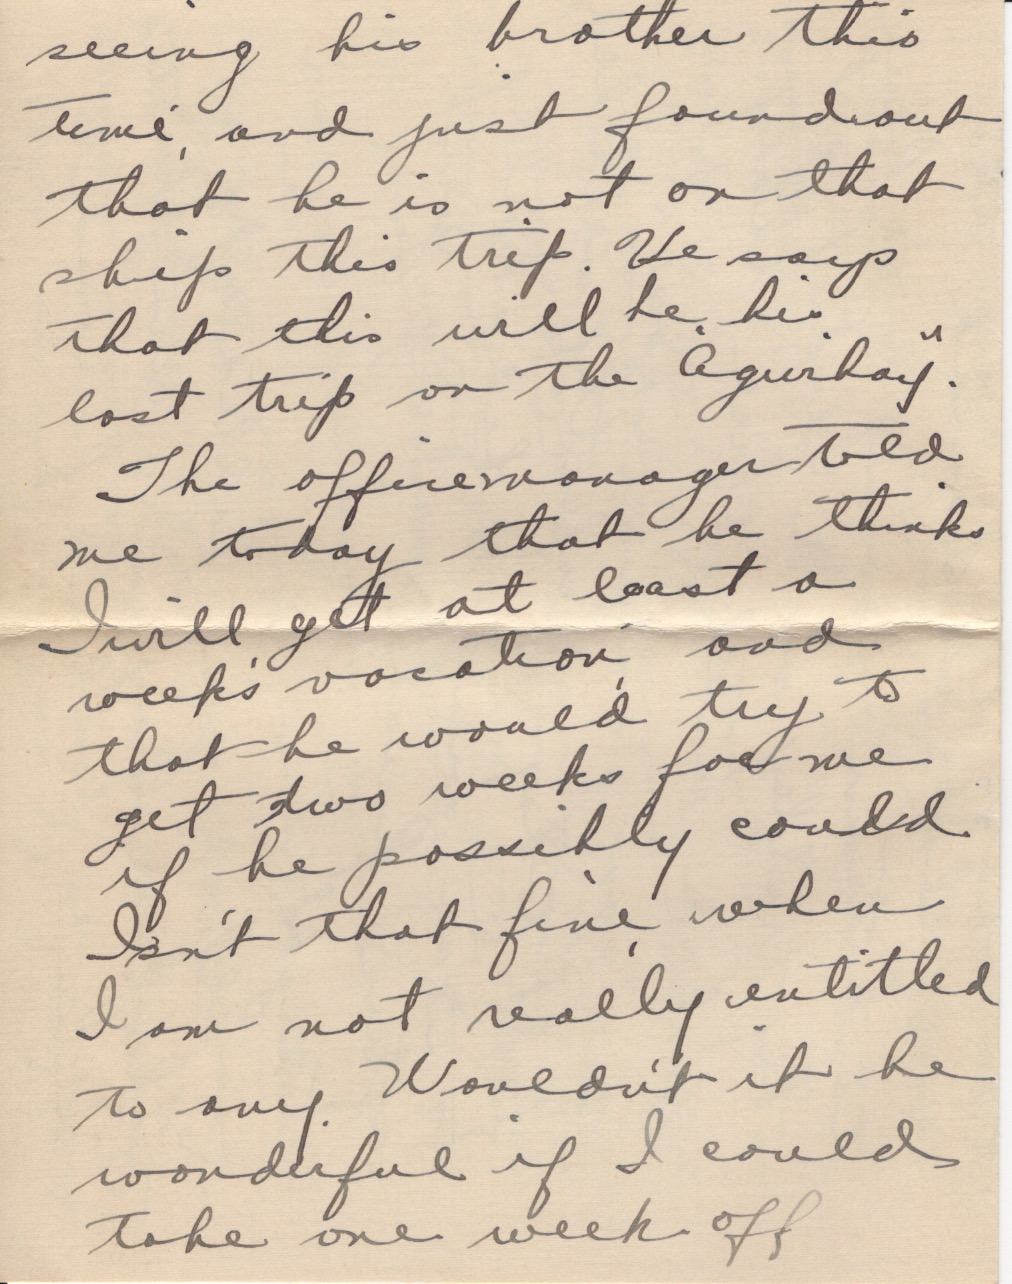 seeing his brother this
time, and just found out
that he is not on that
ship this trip. He says
that this will be his
last trip on the "Aguirbay".
The office manager told
me today that he thinks
I will get at least a
week's vacation, and
that he would try to
get two weeks for me
if he possibly could.
Isn't that fine, when
I am not really entitled
to any. Wouldn't it be
wonderful if I could
take one week off